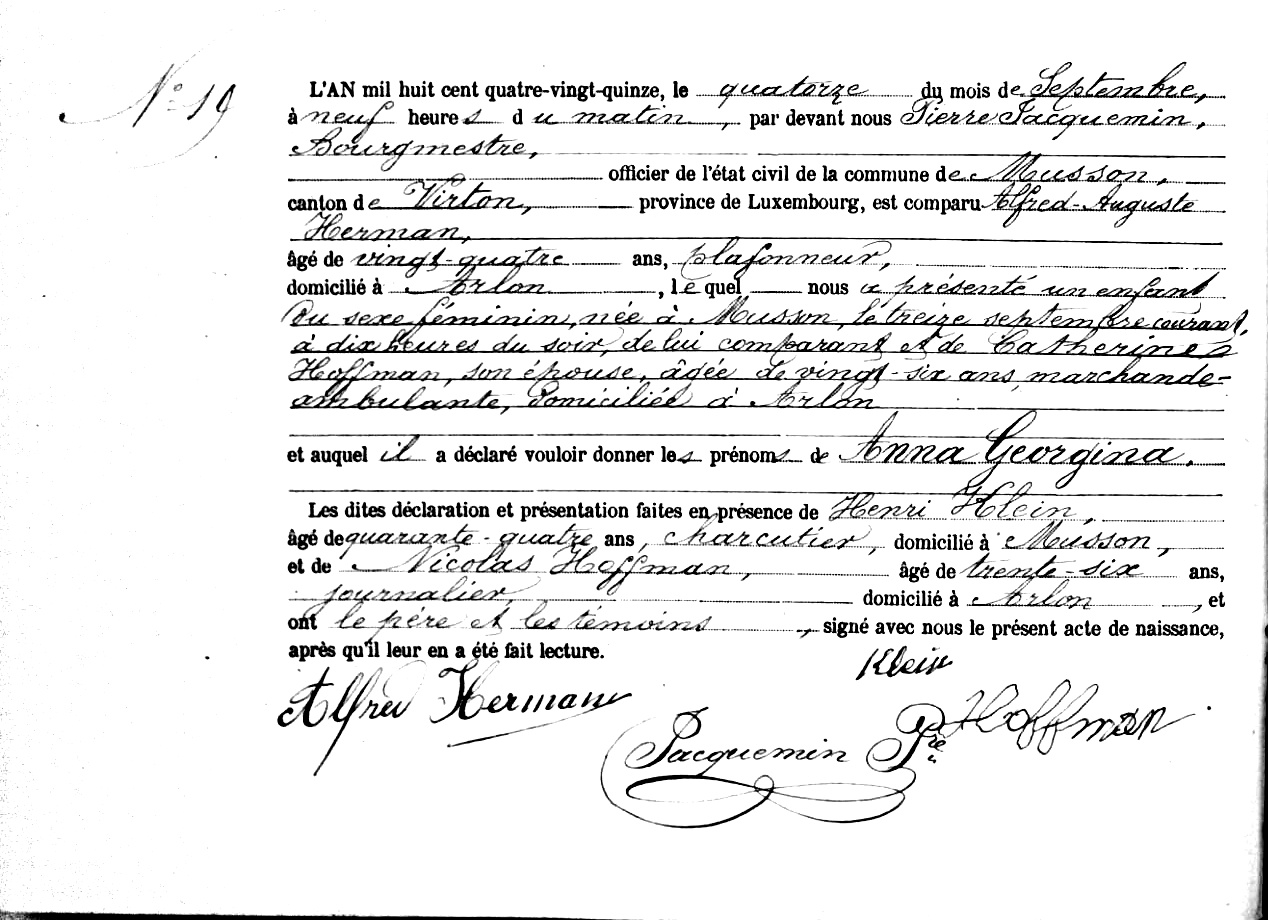 N° 19
L'AN mil huit cent quatre-vingt-quinze, le quatorze du mois de Septembre,
à neuf heures du matin, par devant nous Pierre Jacquemin,
Bourgmestre,
officier de l'état civil de la commune de Musson,
canton de Virton, province de Luxembourg, est comparu Alfred-Auguste
Herman,
âgé de vingt-quatre ans, plafonneur,
domicilié à Arlon, lequel nous a présenté un enfant
du sexe féminin, née à Musson, le treize septembre courant,
à dix heures du soir, de lui comparant et de Catherine
Hoffman, son épouse, âgée de vingt-six ans, marchande-
ambulante, domiciliée à Arlon
et auquel il a déclaré vouloir donner les prénoms de Anna Georgina.
Les dites déclaration et présentation faites en présence de Henri Klein,
âgé de quarante-quatre ans, charcutier, domicilié à Musson,
et de Nicolas Hoffman, âgé de trente-six ans,
journalier, domicilié à Arlon, et
ont le père et les témoins, signé avec nous le présent acte de naissance,
après qu'il leur en a été fait lecture.
Klein
Alfred Herman
Hoffman
Jacquemin Pre